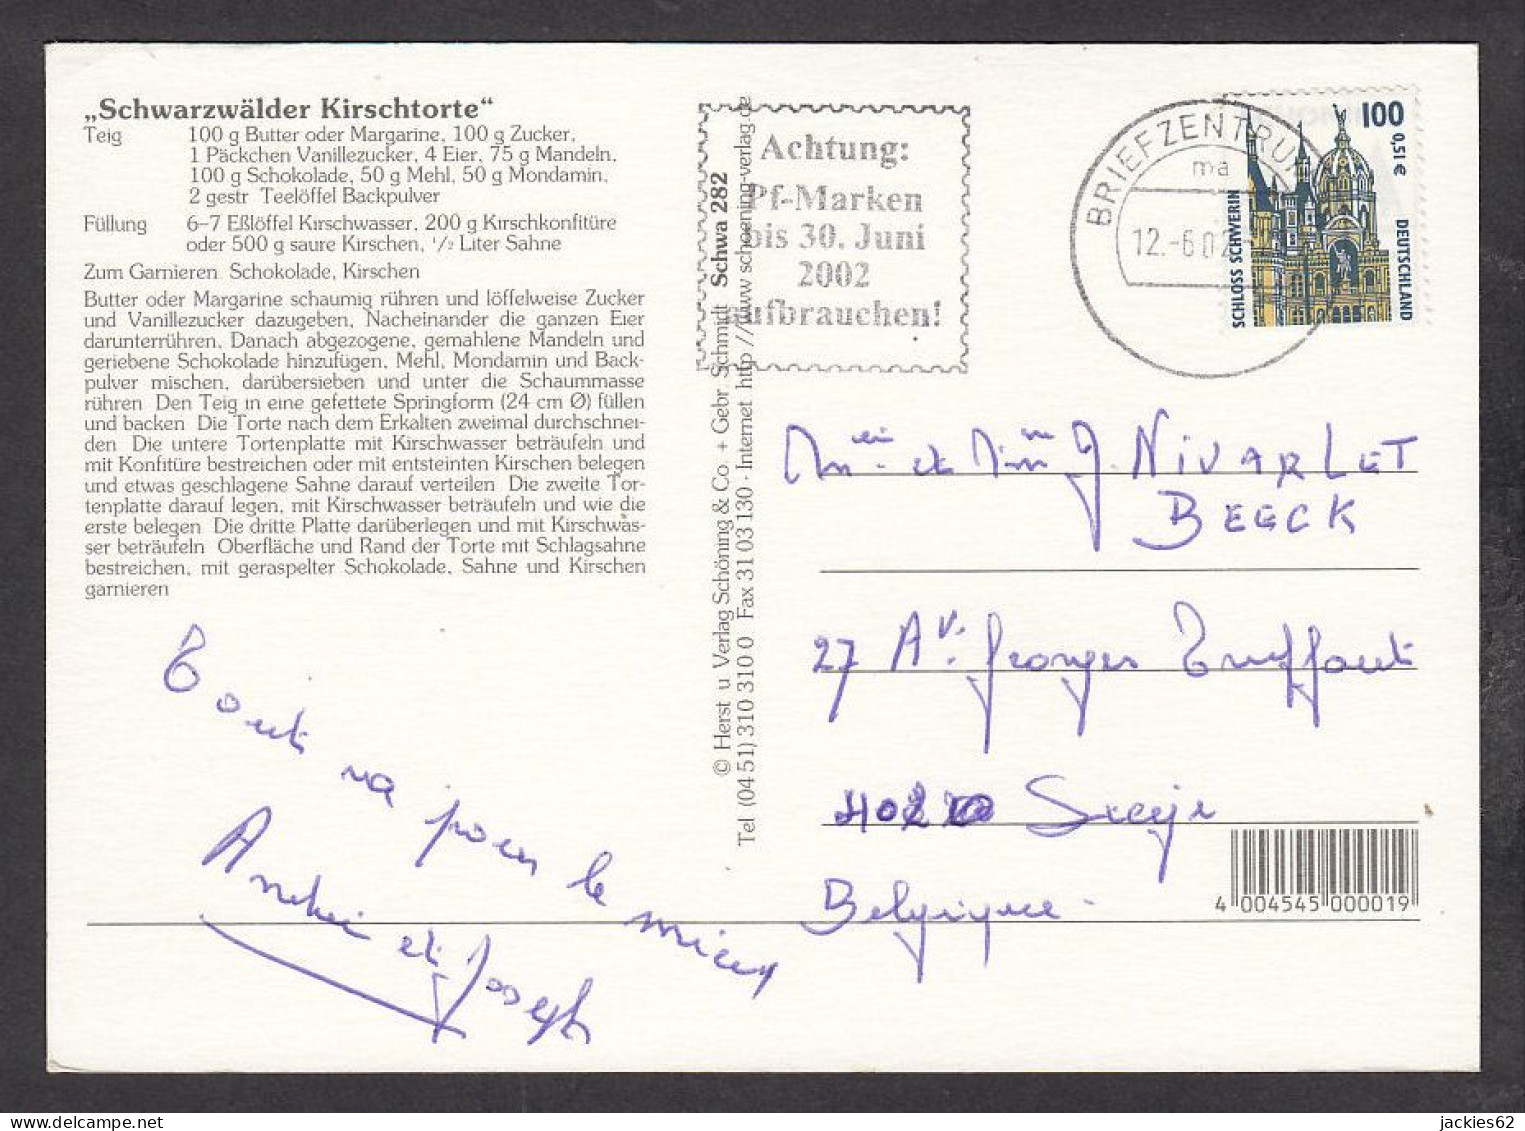 „Schwarzwälder Kirschtorte“
Teig 100 g Butter oder Margarine, 100 g Zucker,
1 Päckchen Vanillezucker, 4 Eier, 75 g Mandeln,
100 g Schokolade, 50 g Mehl, 50 g Mondamin,
2 gestr Teelöffel Backpulver
Füllung 6–7 Eßlöffel Kirschwasser, 200 g Kirschkonfitüre
oder 500 g saure Kirschen, 1/2 Liter Sahne
Zum Garnieren Schokolade, Kirschen
Butter oder Margarine schaumig rühren und löffelweise Zucker
und Vanillezucker dazugeben, Nacheinander die ganzen Eier
darunterrühren, Danach abgezogene, gemahlene Mandeln und
geriebene Schokolade hinzufügen, Mehl, Mondamin und Back-
pulver mischen, darübersieben und unter die Schaummasse
rühren Den Teig in eine gefettete Springform (24 cm Ø) füllen
und backen Die Torte nach dem Erkalten zweimal durchschnei-
den Die untere Tortenplatte mit Kirschwasser beträufeln und
mit Konfitüre bestreichen oder mit entsteinten Kirschen belegen
und etwas geschlagene Sahne darauf verteilen Die zweite Tor-
tenplatte darauf legen, mit Kirschwasser beträufeln und wie die
erste belegen Die dritte Platte darüberlegen und mit Kirschwas-
ser beträufeln Oberfläche und Rand der Torte mit Schlagsahne
bestreichen, mit geraspelter Schokolade, Sahne und Kirschen
garnieren
Tout va pour le mieux
et Joseph
© Herst u Verlag Schöning & Co. + Gebr Schmidt Schwa 282
Tel (04 51) 310 310 0 Fax 31 03 130 · Internet http //www schoening-verlag.de
Achtung:
Pf-Marken
bis 30. Juni
2002
aufbrauchen!
BRIEFZENTRUM
ma
12.-6.02
100
0,51 €
SCHLOSS SCHWERIN
DEUTSCHLAND
et J. NIVARLET
BEECK
27 Av. Georges Truffaut
Belgique
4 004545 000019
jackies62